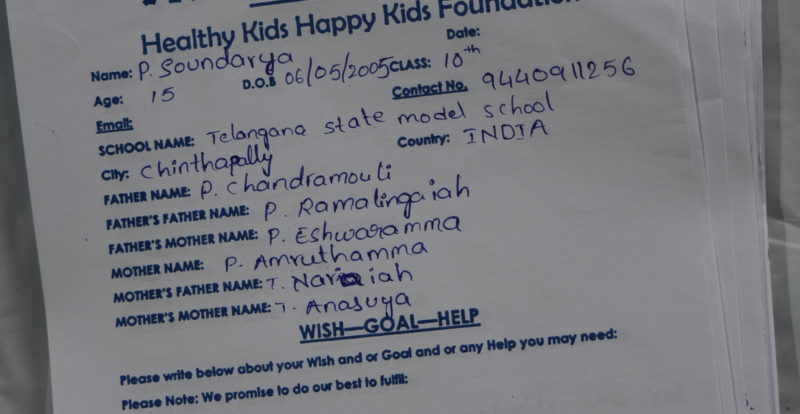 Healthy Kids Happy Kids Foundation
Date:
Name: P. Soundarya
D.O.B 06/05/2005 CLASS: 10th
Age: 15
Contact No. 9440911256
Email:
SCHOOL NAME: Telangana state model school
City: Chinthapally Country: INDIA
FATHER NAME: P. Chandramouli
FATHER'S FATHER NAME: P. Ramalingaiah
FATHER'S MOTHER NAME: P. Eshwaramma
MOTHER NAME: P. Amruthamma
MOTHER'S FATHER NAME: T. Naraiah
MOTHER'S MOTHER NAME: T. Anasuya
WISH—GOAL—HELP
Please write below about your Wish and or Goal and or any Help you may need:
Please Note: We promise to do our best to fulfil: